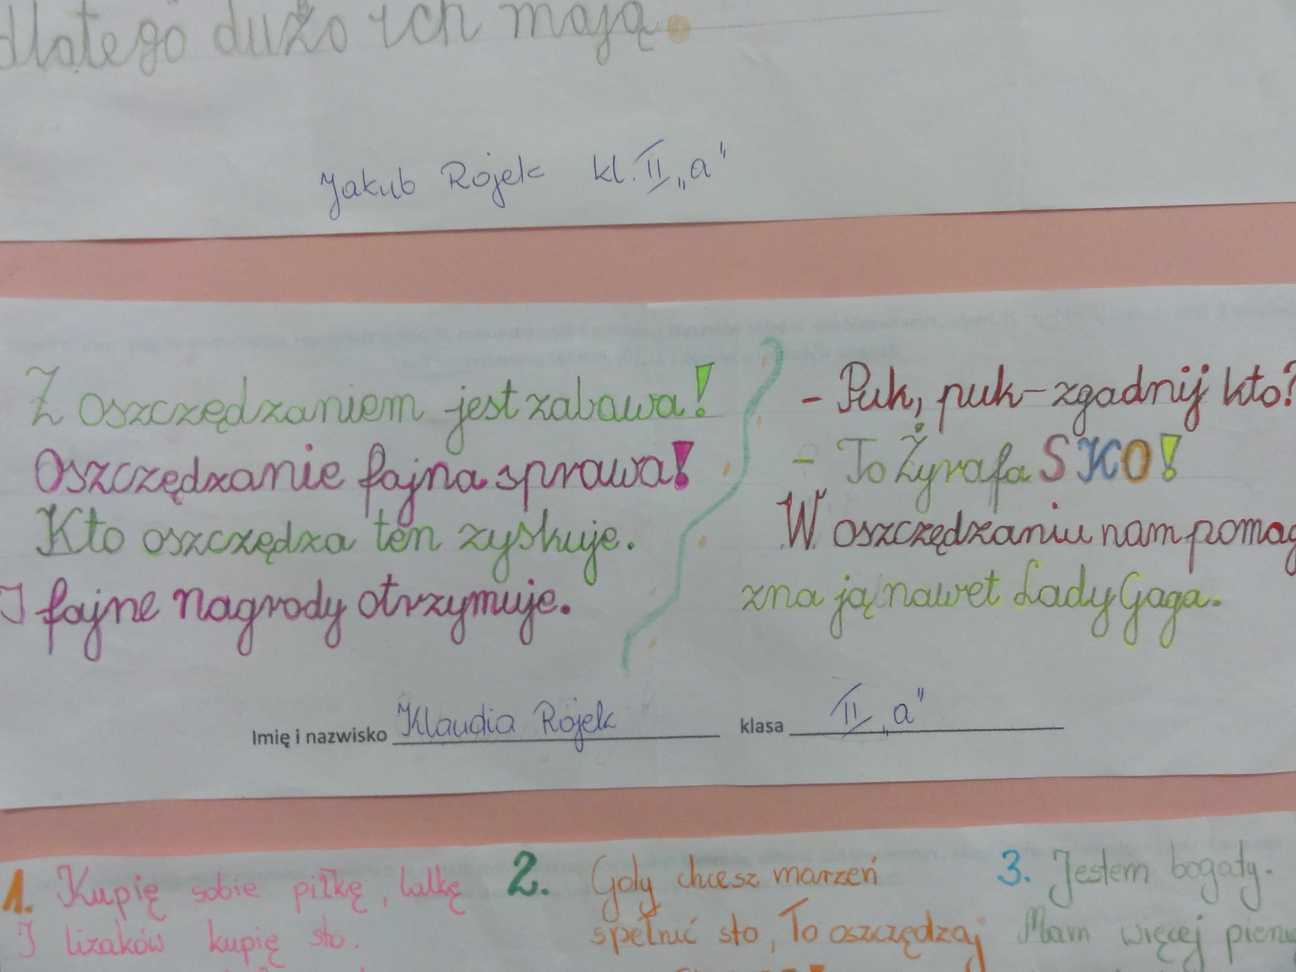 dlatego dużo ich mają.
Jakub Rojek kl. II "a"
Z oszczędzaniem jest zabawa!
Oszczędzanie fajna sprawa!
Kto oszczędza ten zyskuje.
I fajne nagrody otrzymuje.
- Puk, puk - zgadnij kto?
- To Żyrafa SKO!
W oszczędzaniu nam pomag
zna ją nawet Lady Gaga.
Imię i nazwisko Klaudia Rojek klasa II „a"
1. Kupię sobie piłkę, lalkę
I lizaków kupię sto.
2. Gdy chcesz marzeń
spełnić sto, To oszczędzaj
3. Jestem bogaty.
Mam więcej pien